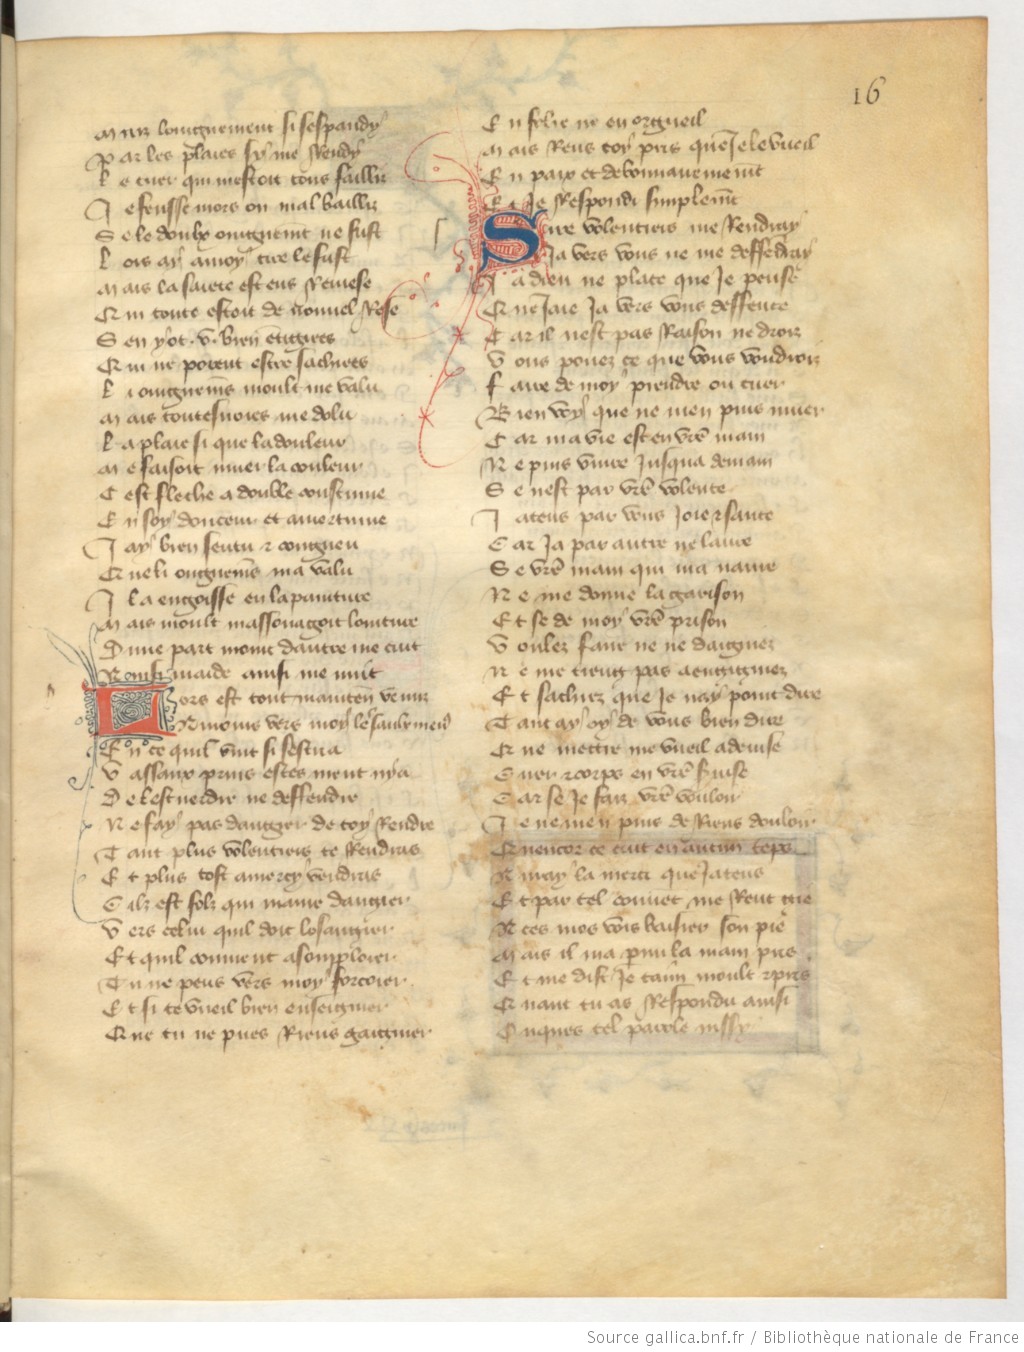 16
Mais loingnement si sespandy
Par les plaies sy me Rendy
Le cuer qui mestoit tous faillir
Je feusse mors ou mal bailliz
Se le doulx oingnement ne fust
Lors ay a moy tire le fust
Mais la saiete est ens Remese
Qui toute estoit de nouvel Rese
Sen y ot .v. bien
Qui ne porent estre sachiees
Li oingnems moult me valu
Mais toutesvoies me dolu
La plaie si que la douleur
Me faisoit muer la couleur
Cest fleche a double coustume
En soy douceur et amertume
Jay bien sentu et congneu
Que li oingnems ma valu
Il a engoisse en la pointure
Mais moult massouagoit lointure
Dune part moint dautre me cuit
Ainsi maide ainsi me nuit
Lors est tout mainten venuz
Amours vers moy les saulx menus
En ce quil vint si sescria
Vassaux prins estes ny a
De lestuerdir ne deffendre
Ne fay pas dangier de toy Rendre
Tant plus volentiers te Rendras
Et plus tost a mercy vendras
Cilz est folz qui maine dangier
Vers celui quil doit losangier
Et quil convient a souploier
Tu ne peus vers moy forcoier
Et si te vueil bien enseignier
Que tu ne pues Riens gaignier
En folie ne en orgueil
Mais Rens toy pris que Je le vueil
En paix et debonnairemēt
Et Je Respondi simplemt
Sire volentiers me Rendray
Ja vers vous ne me deffēdray
Ja dieu ne place que Je pense
Que Jaie Ja vers vous deffence
Car il nest pas Raison ne droiz
Vous pouez ce que vous voudroiz
Faire de moy prendre ou tuer
Bien voy que ne men puis muer
Car ma vie est en vre main
Ne puis vivre Jusqua demain
Se nest par vre volente
Jatens par vous Joie et sante
Car Ja par autre ne laure
Se vre main qui ma navre
Ne me donne la garison
Et se de moy vre prison
Voulez faire ne ne daigniez
Ne me tieng pas a engigniez
Et sachiez que Je nay point dire
Tant ay oy de vous bien dire
Que mettre me vueil a devise
Cuer et corps en vre svise
Car se Je faiz vre vouloir
Je ne men puis de Riens douloir
Quencor ce cuit en aucun tēps
Auray la merci que Jatens
Et par tel couvet me Rent gie
A ces mos vois baisier son pie
Mais il ma p mi la main pris
Et me dist Je taim moult et pris
Quant tu as Respondu ainsi
Onques tel parole nissy
Source gallica.bnf.fr / Bibliothèque nationale de France